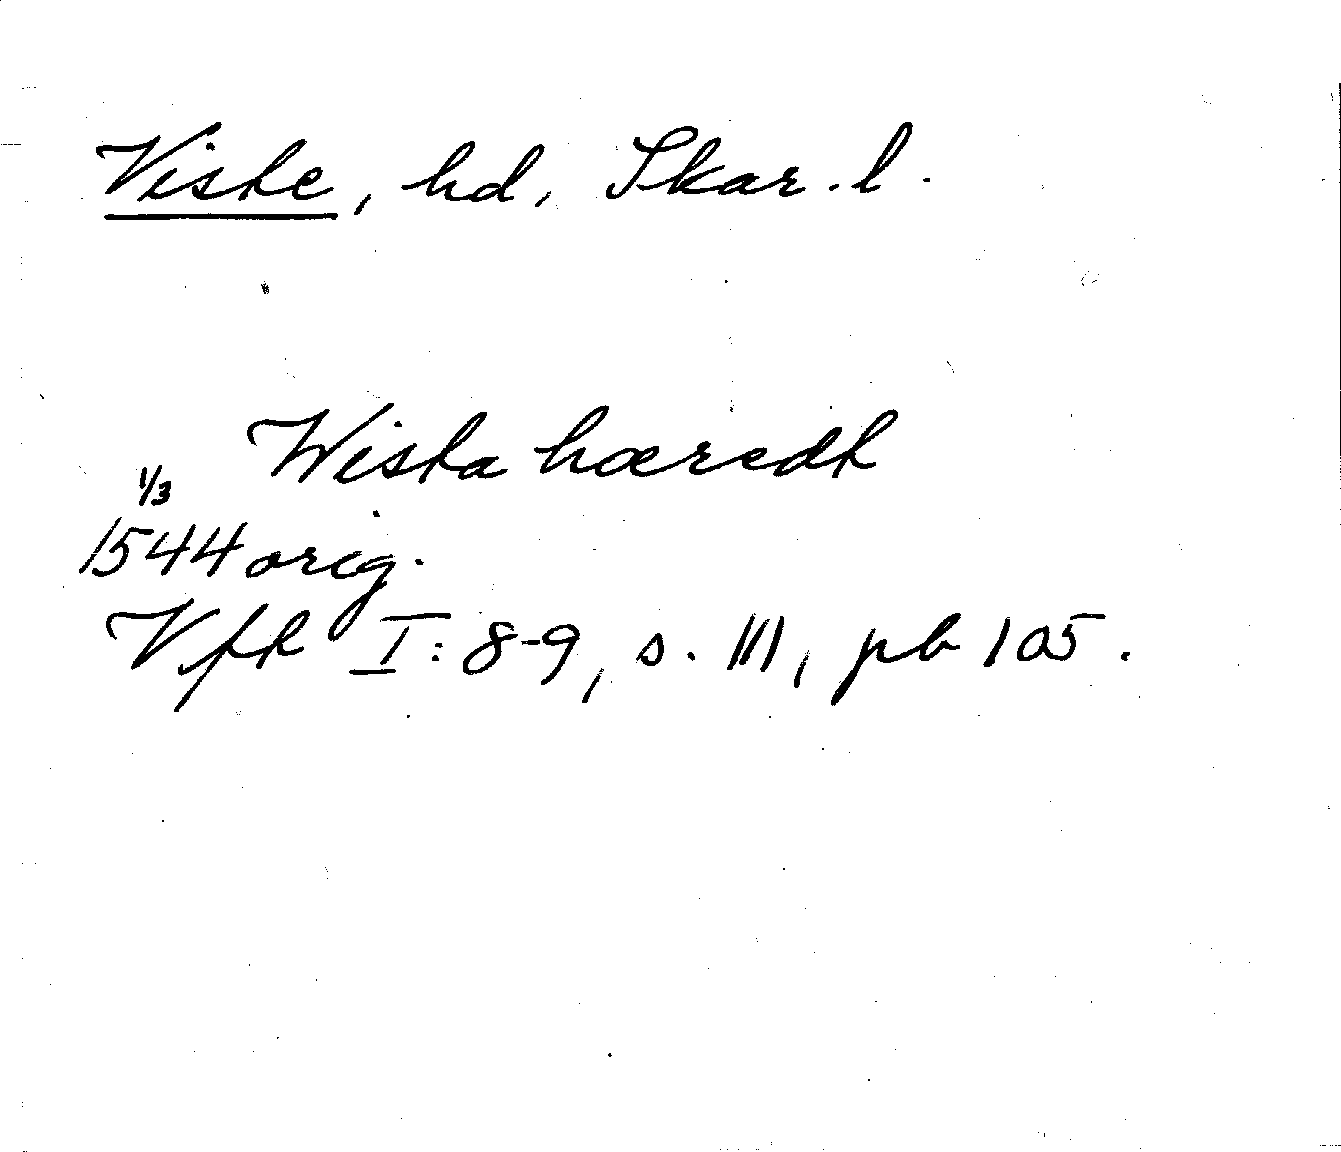 Viste, hd, Skar. l.
Wista hæredt
1/3
1544 orig.
Vft I: 8-9, s. 111, pb 105.